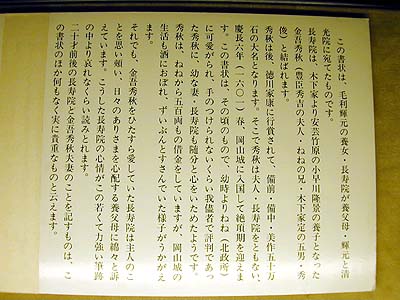 この書状は、毛利輝元の養女・長寿院が養父母・輝元と清
光院に宛てたものです。
長寿院は、木下家より安芸竹原の小早川隆景の養子となった
金吾秀秋（豊臣秀吉の夫人・ねねの兄・木下家定の五男・秀
俊）と結ばれます。
秀秋は後、徳川家康に行賞されて、備前・備中・美作五十万
石の大名となります。そこで秀秋は夫人・長寿院をともない、
慶長六年（一六〇一）春、岡山城に入国して絶頂期を迎えま
す。この書状は、その頃のもので、幼時よりねね（北政所）
に可愛がられ、手のつけられないくらい我儘者で評判であっ
た秀秋に、幼な妻・長寿院も随分と心をいためたようです。
秀秋は、ねねから五百両もの借金をしていますが、岡山城の
生活も酒におぼれ、ずいぶんとすさんでいた様子がうかがえ
ます。
それでも、金吾秀秋をひたすら愛していた長寿院は主人のこ
とを思い煩い、日々のありさまを心配する養父母に綿々と訴
えています。こうした長寿院の心情がこの若くて力強い筆跡
の中より哀れなくらい読みとれます。
二十才前後の長寿院と金吾秀秋夫妻のことを記すものは、こ
の書状のほか何もなく実に貴重なものと云えます。